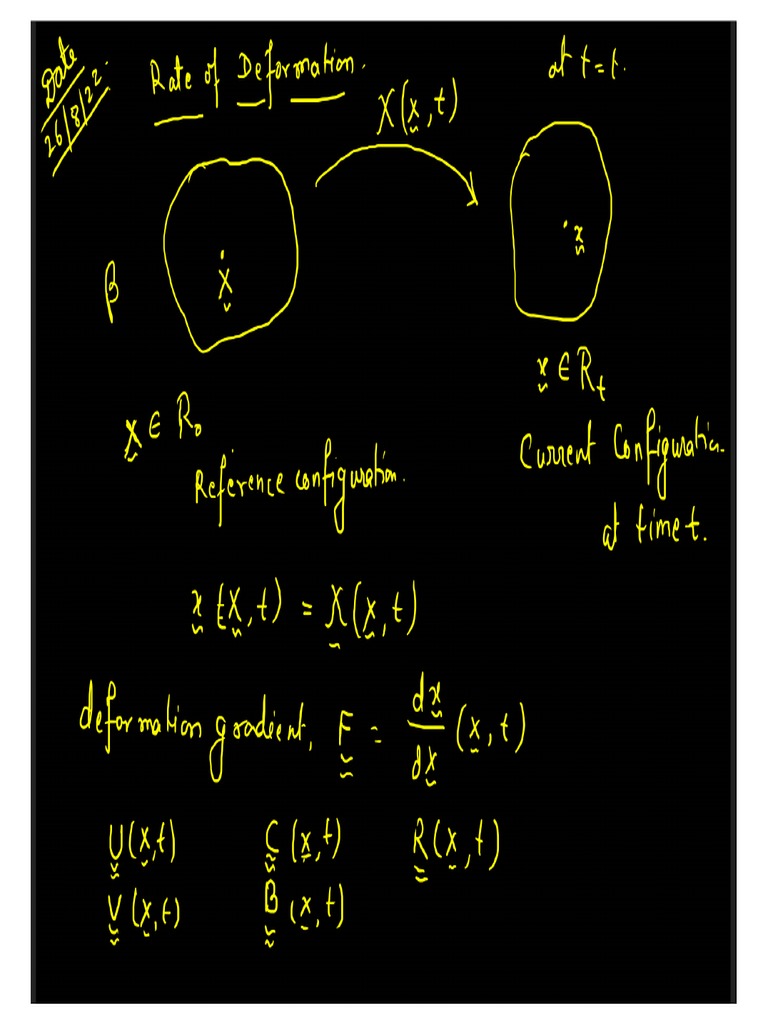 Date
26/8/22.
Rate of Deformation.
at t=t.
X(x,t)
β
X
x
X ∈ R₀
Reference configuration.
x ∈ Rₜ
Current Configuration
at time t.
x(X,t) = X(x,t)
deformation gradient, F = dx/dX (x,t)
U(x,t) C(x,t) R(x,t)
V(x,t) B(x,t)